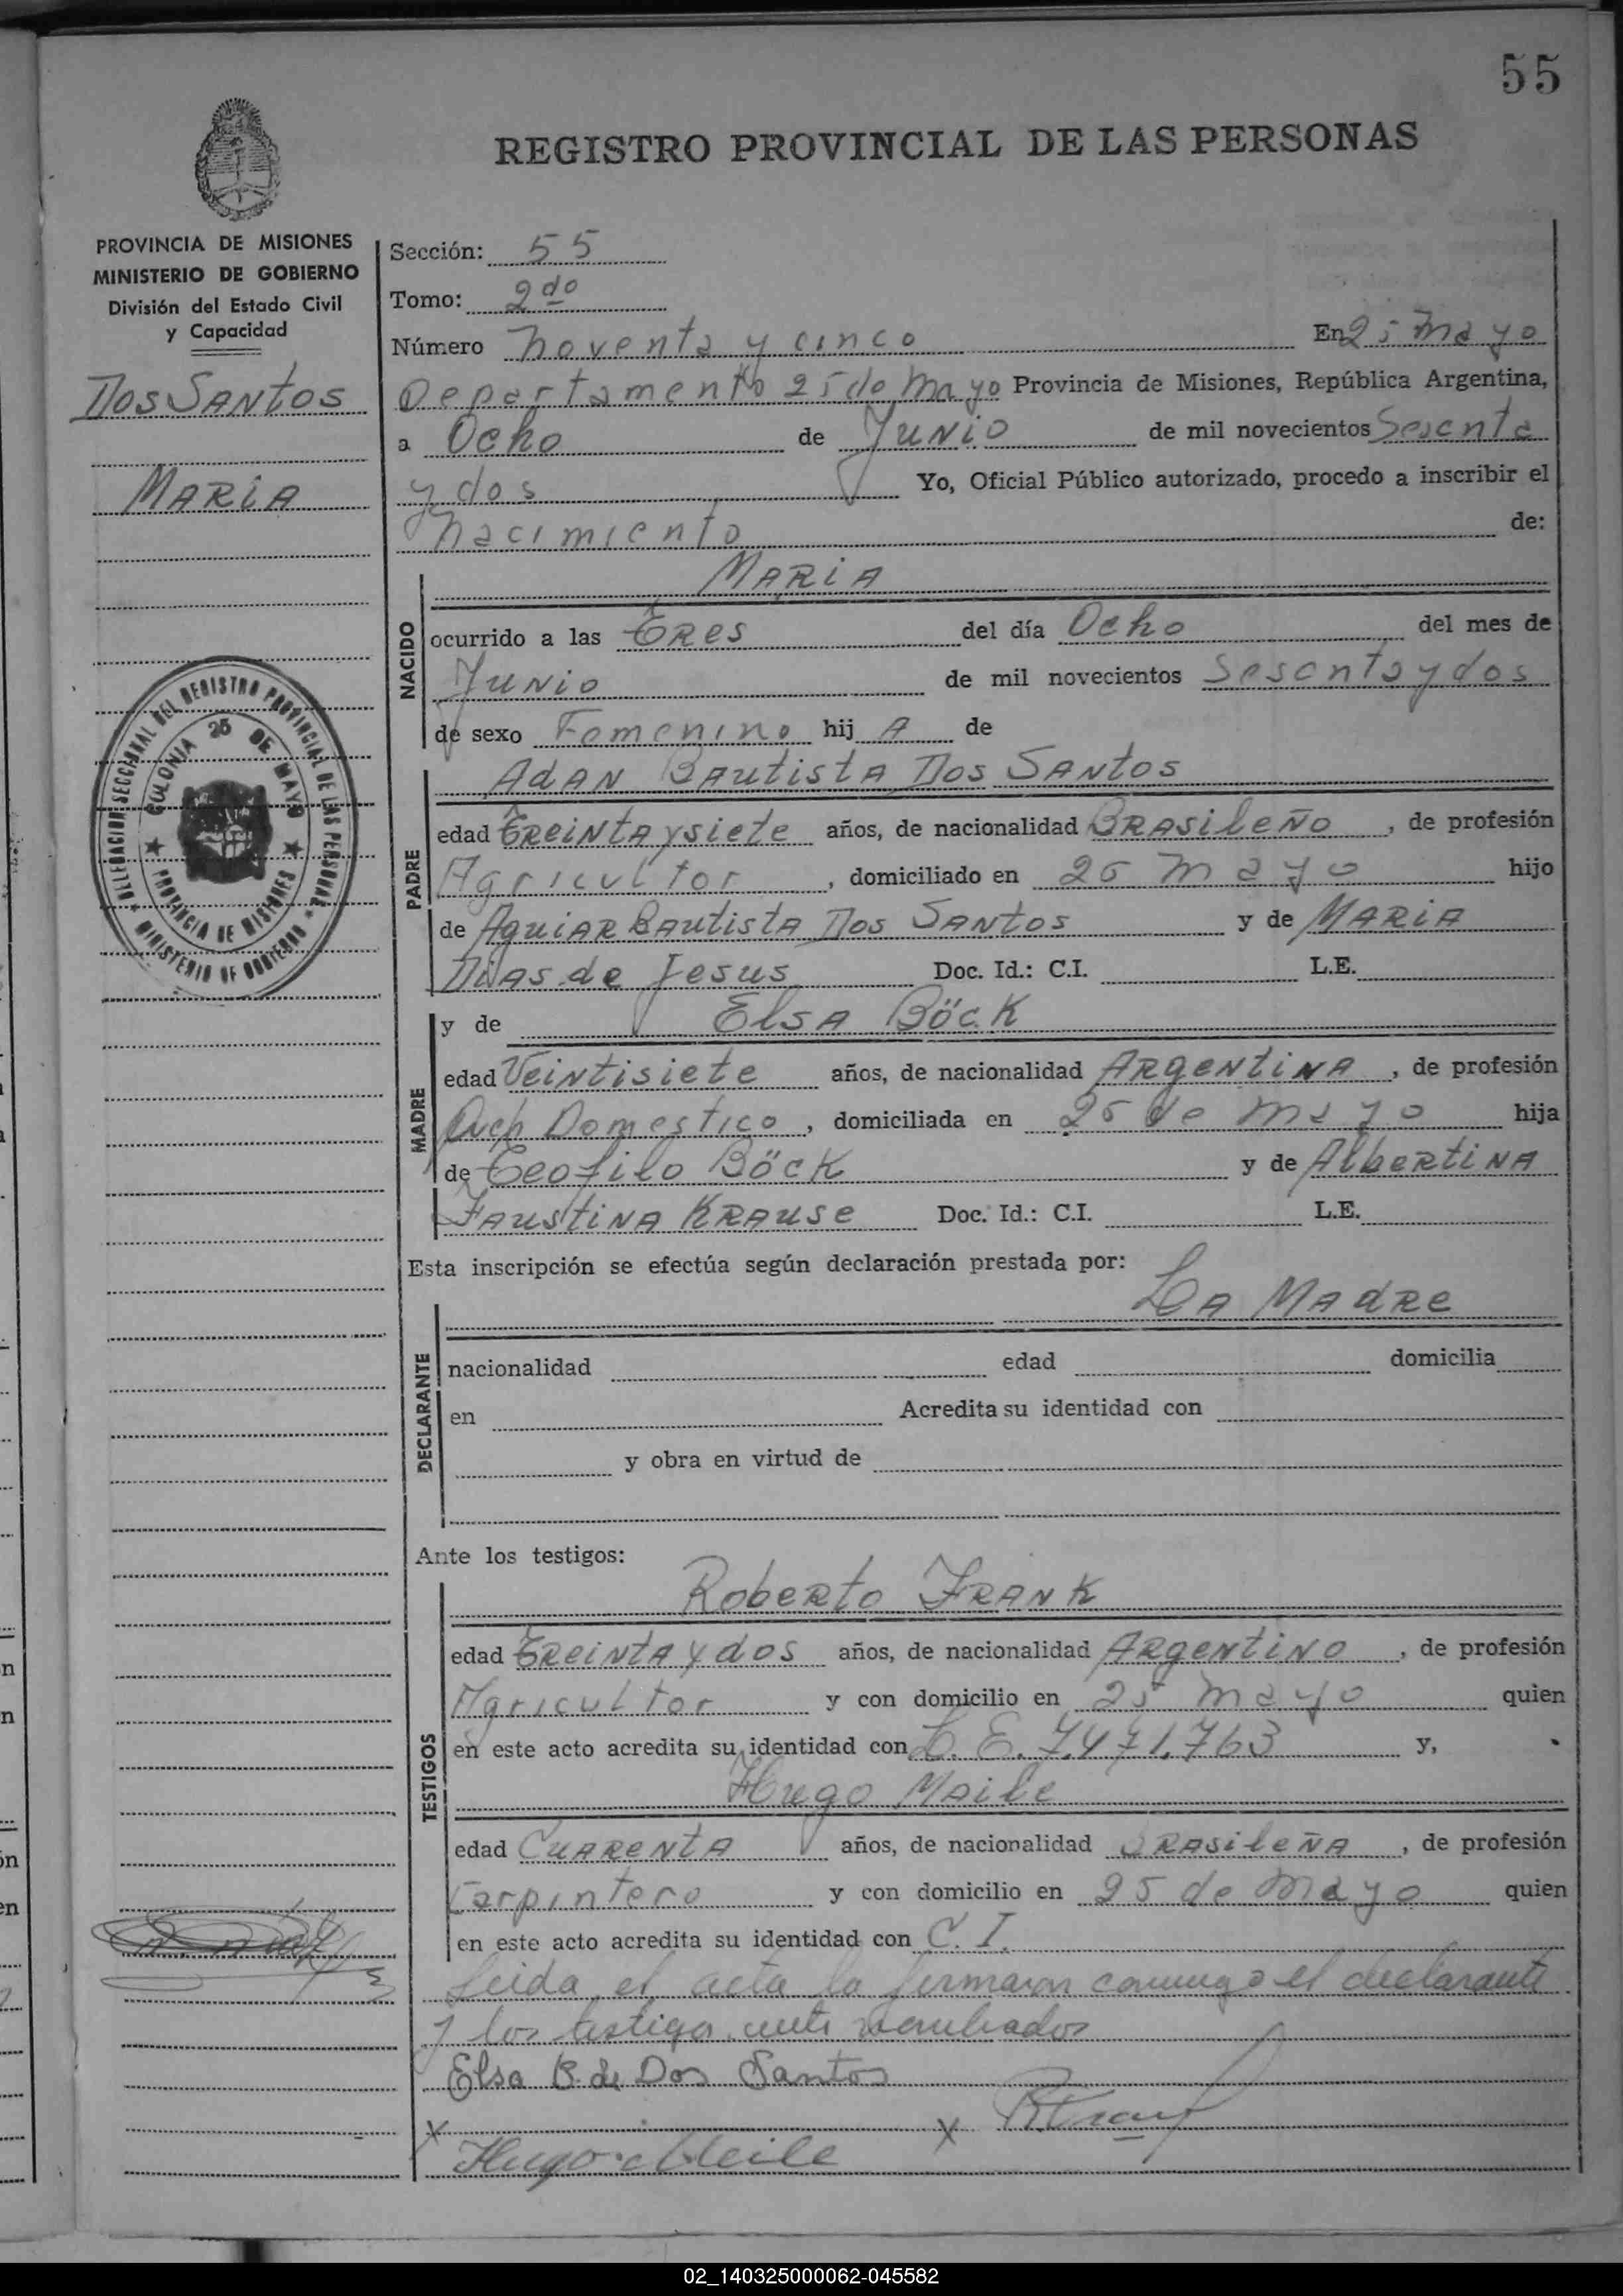 55
REGISTRO PROVINCIAL DE LAS PERSONAS
PROVINCIA DE MISIONES
MINISTERIO DE GOBIERNO
División del Estado Civil
y Capacidad
Dos Santos
Maria
DELEGACION SECCIONAL DEL REGISTRO PROVINCIAL DE LAS PERSONAS
COLONIA 25 DE MAYO
PROVINCIA DE MISIONES
MINISTERIO DE GOBIERNO
Sección: 55
Tomo: 2do
Número Noventa y cinco En 25 Mayo
Departamento 25 de Mayo Provincia de Misiones, República Argentina,
a Ocho de Junio de mil novecientos Sesenta
y dos Yo, Oficial Público autorizado, procedo a inscribir el
Nacimiento de:
Maria
NACIDO
ocurrido a las Tres del día Ocho del mes de
Junio de mil novecientos Sesenta y dos
de sexo Femenino hij A de
Adan Bautista Dos Santos
PADRE
edad Treinta y siete años, de nacionalidad Brasileño, de profesión
Agricultor, domiciliado en 25 Mayo hijo
de Aguiar Bautista Dos Santos y de Maria
Dias de Jesus Doc. Id.: C.I. L.E.
y de Elsa Böck
MADRE
edad Veintisiete años, de nacionalidad Argentina, de profesión
Queh Domestico, domiciliada en 25 de Mayo hija
de Teofilo Böck y de Albertina
Faustina Krause Doc. Id.: C.I. L.E.
Esta inscripción se efectúa según declaración prestada por:
La Madre
DECLARANTE
nacionalidad edad domicilia
en Acredita su identidad con
y obra en virtud de
Ante los testigos:
Roberto Frank
TESTIGOS
edad Treinta y dos años, de nacionalidad Argentino, de profesión
Agricultor y con domicilio en 25 Mayo quien
en este acto acredita su identidad con L. E. 7.471.763 y,
Hugo Maile
edad Cuarenta años, de nacionalidad Brasileña, de profesión
Carpintero y con domicilio en 25 de Mayo quien
en este acto acredita su identidad con C. I.
Leida el acta la firmaron conmigo el declarante
y los testigos ante nombrados
Elsa B. de Dos Santos
X X
Hugo Meile
02_140325000062-045582